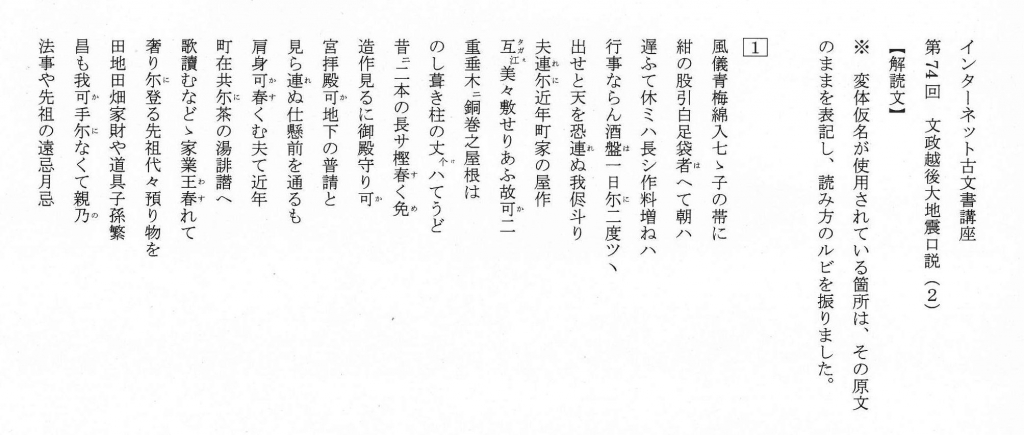 インターネット古文書講座
第74回　文政越後大地震口説（2）
【解読文】
※　変体仮名が使用されている箇所は、その原文
のままを表記し、読み方のルビを振りました。
1
風儀青梅綿入七ゝ子の帯に
紺の股引白足袋者へて朝ハ
遅ふて休ミハ長シ作料増ねハ
行事ならん酒盤一日尓二度ツヽ
出せと天を恐連ぬ我侭斗り
夫連尓近年町家の屋作
互江美々敷せりあふ故可二
重垂木ニ銅巻之屋根は
のし葺き柱の丈ケハてうど
昔ニ二本の長サ樫春く免
造作見るに御殿守り可
宮拝殿可地下の普請と
見ら連ぬ仕懸前を通るも
肩身可春くむ夫て近年
町在共尓茶の湯誹諧へ
歌讀むなどゝ家業王春れて
奢り尓登る先祖代々預り物を
田地田畑家財や道具子孫繁
昌も我可手尓なくて親乃
法事や先祖の遠忌月忌